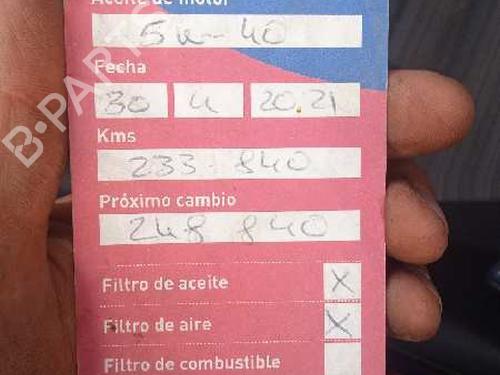 Aceite de motor
5w-40
Fecha
30 4 2021
Kms
233-840
Próximo cambio
248 840
Filtro de aceite X
Filtro de aire X
Filtro de combustible
B-PARTS